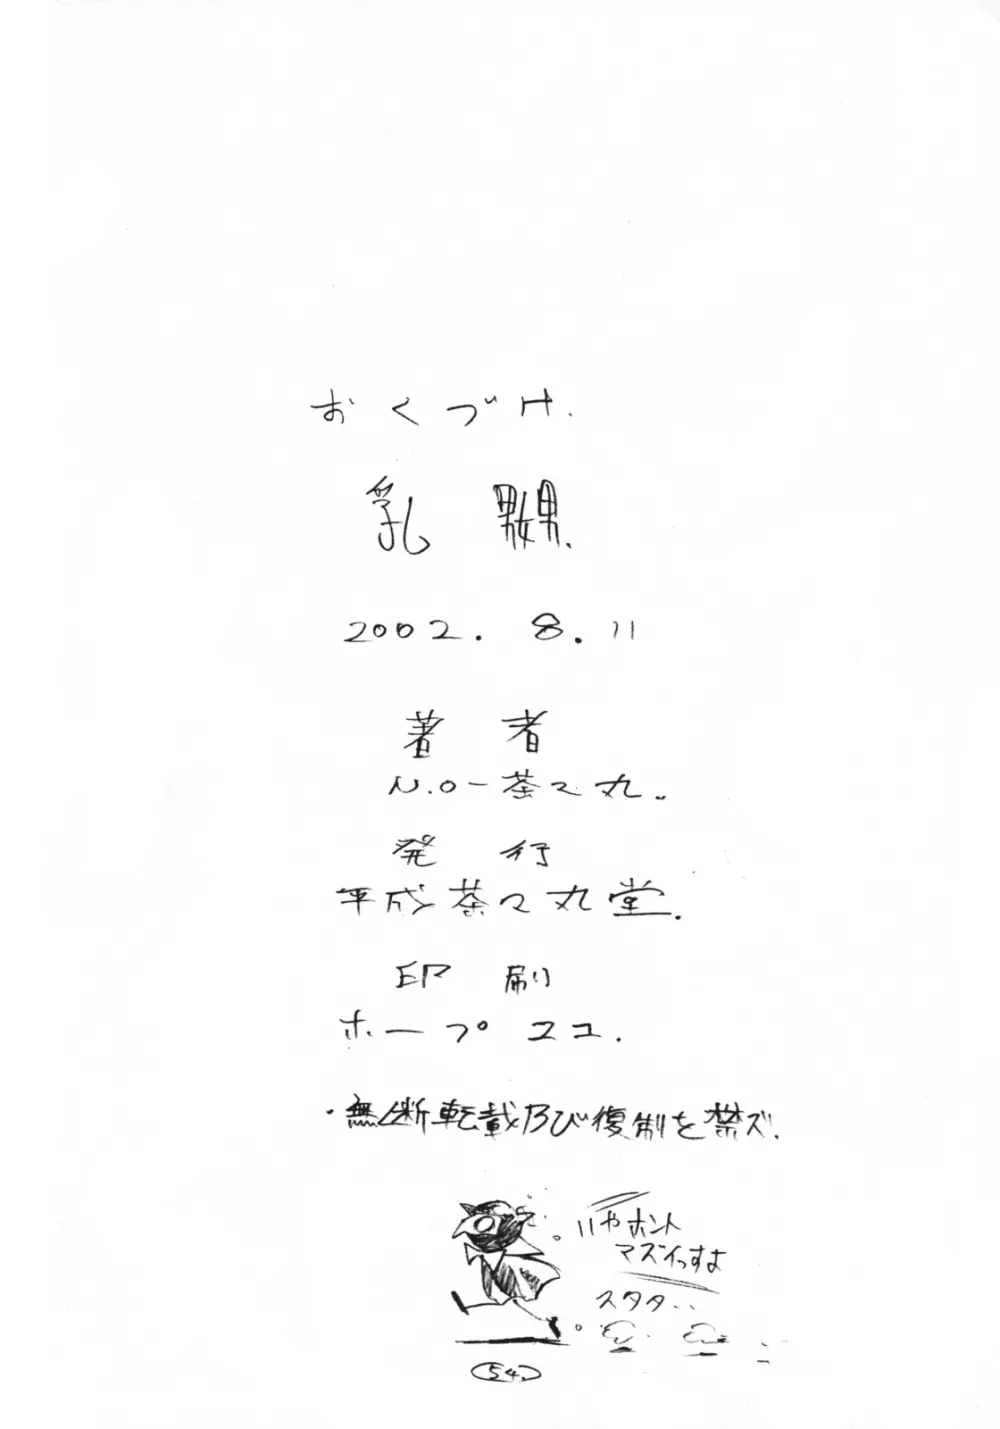 おくづけ.
乳 嬲.
2002. 8. 11
著 者
N.O-茶々丸..
発 行
平成茶々丸堂.
印 刷
ホープユユ.
・無断転載及び復制を禁ズ.
いやホント
マズイっすよ
スタタ..
54.